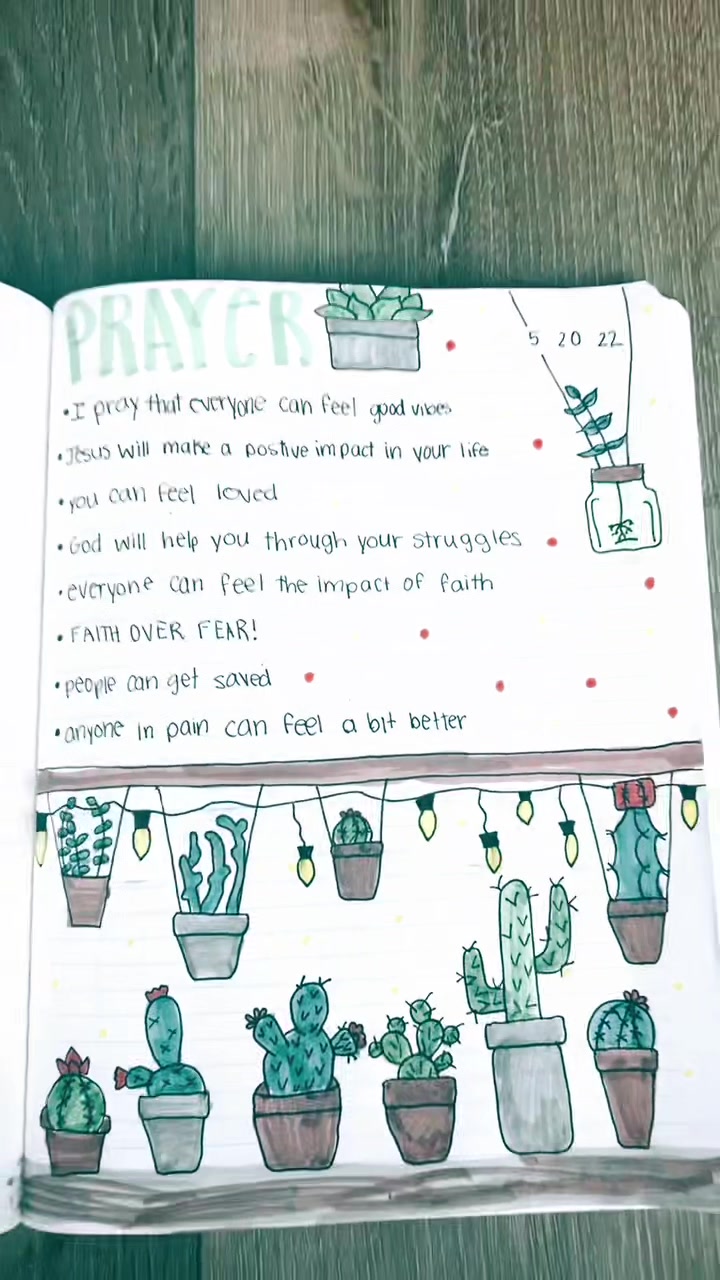 PRAYER
5 20 22
•I pray that everyone can feel good vibes
•Jesus will make a postive impact in your life
•you can feel loved
•God will help you through your struggles
•everyone can feel the impact of faith
•FAITH OVER FEAR!
•people can get saved
•anyone in pain can feel a bit better